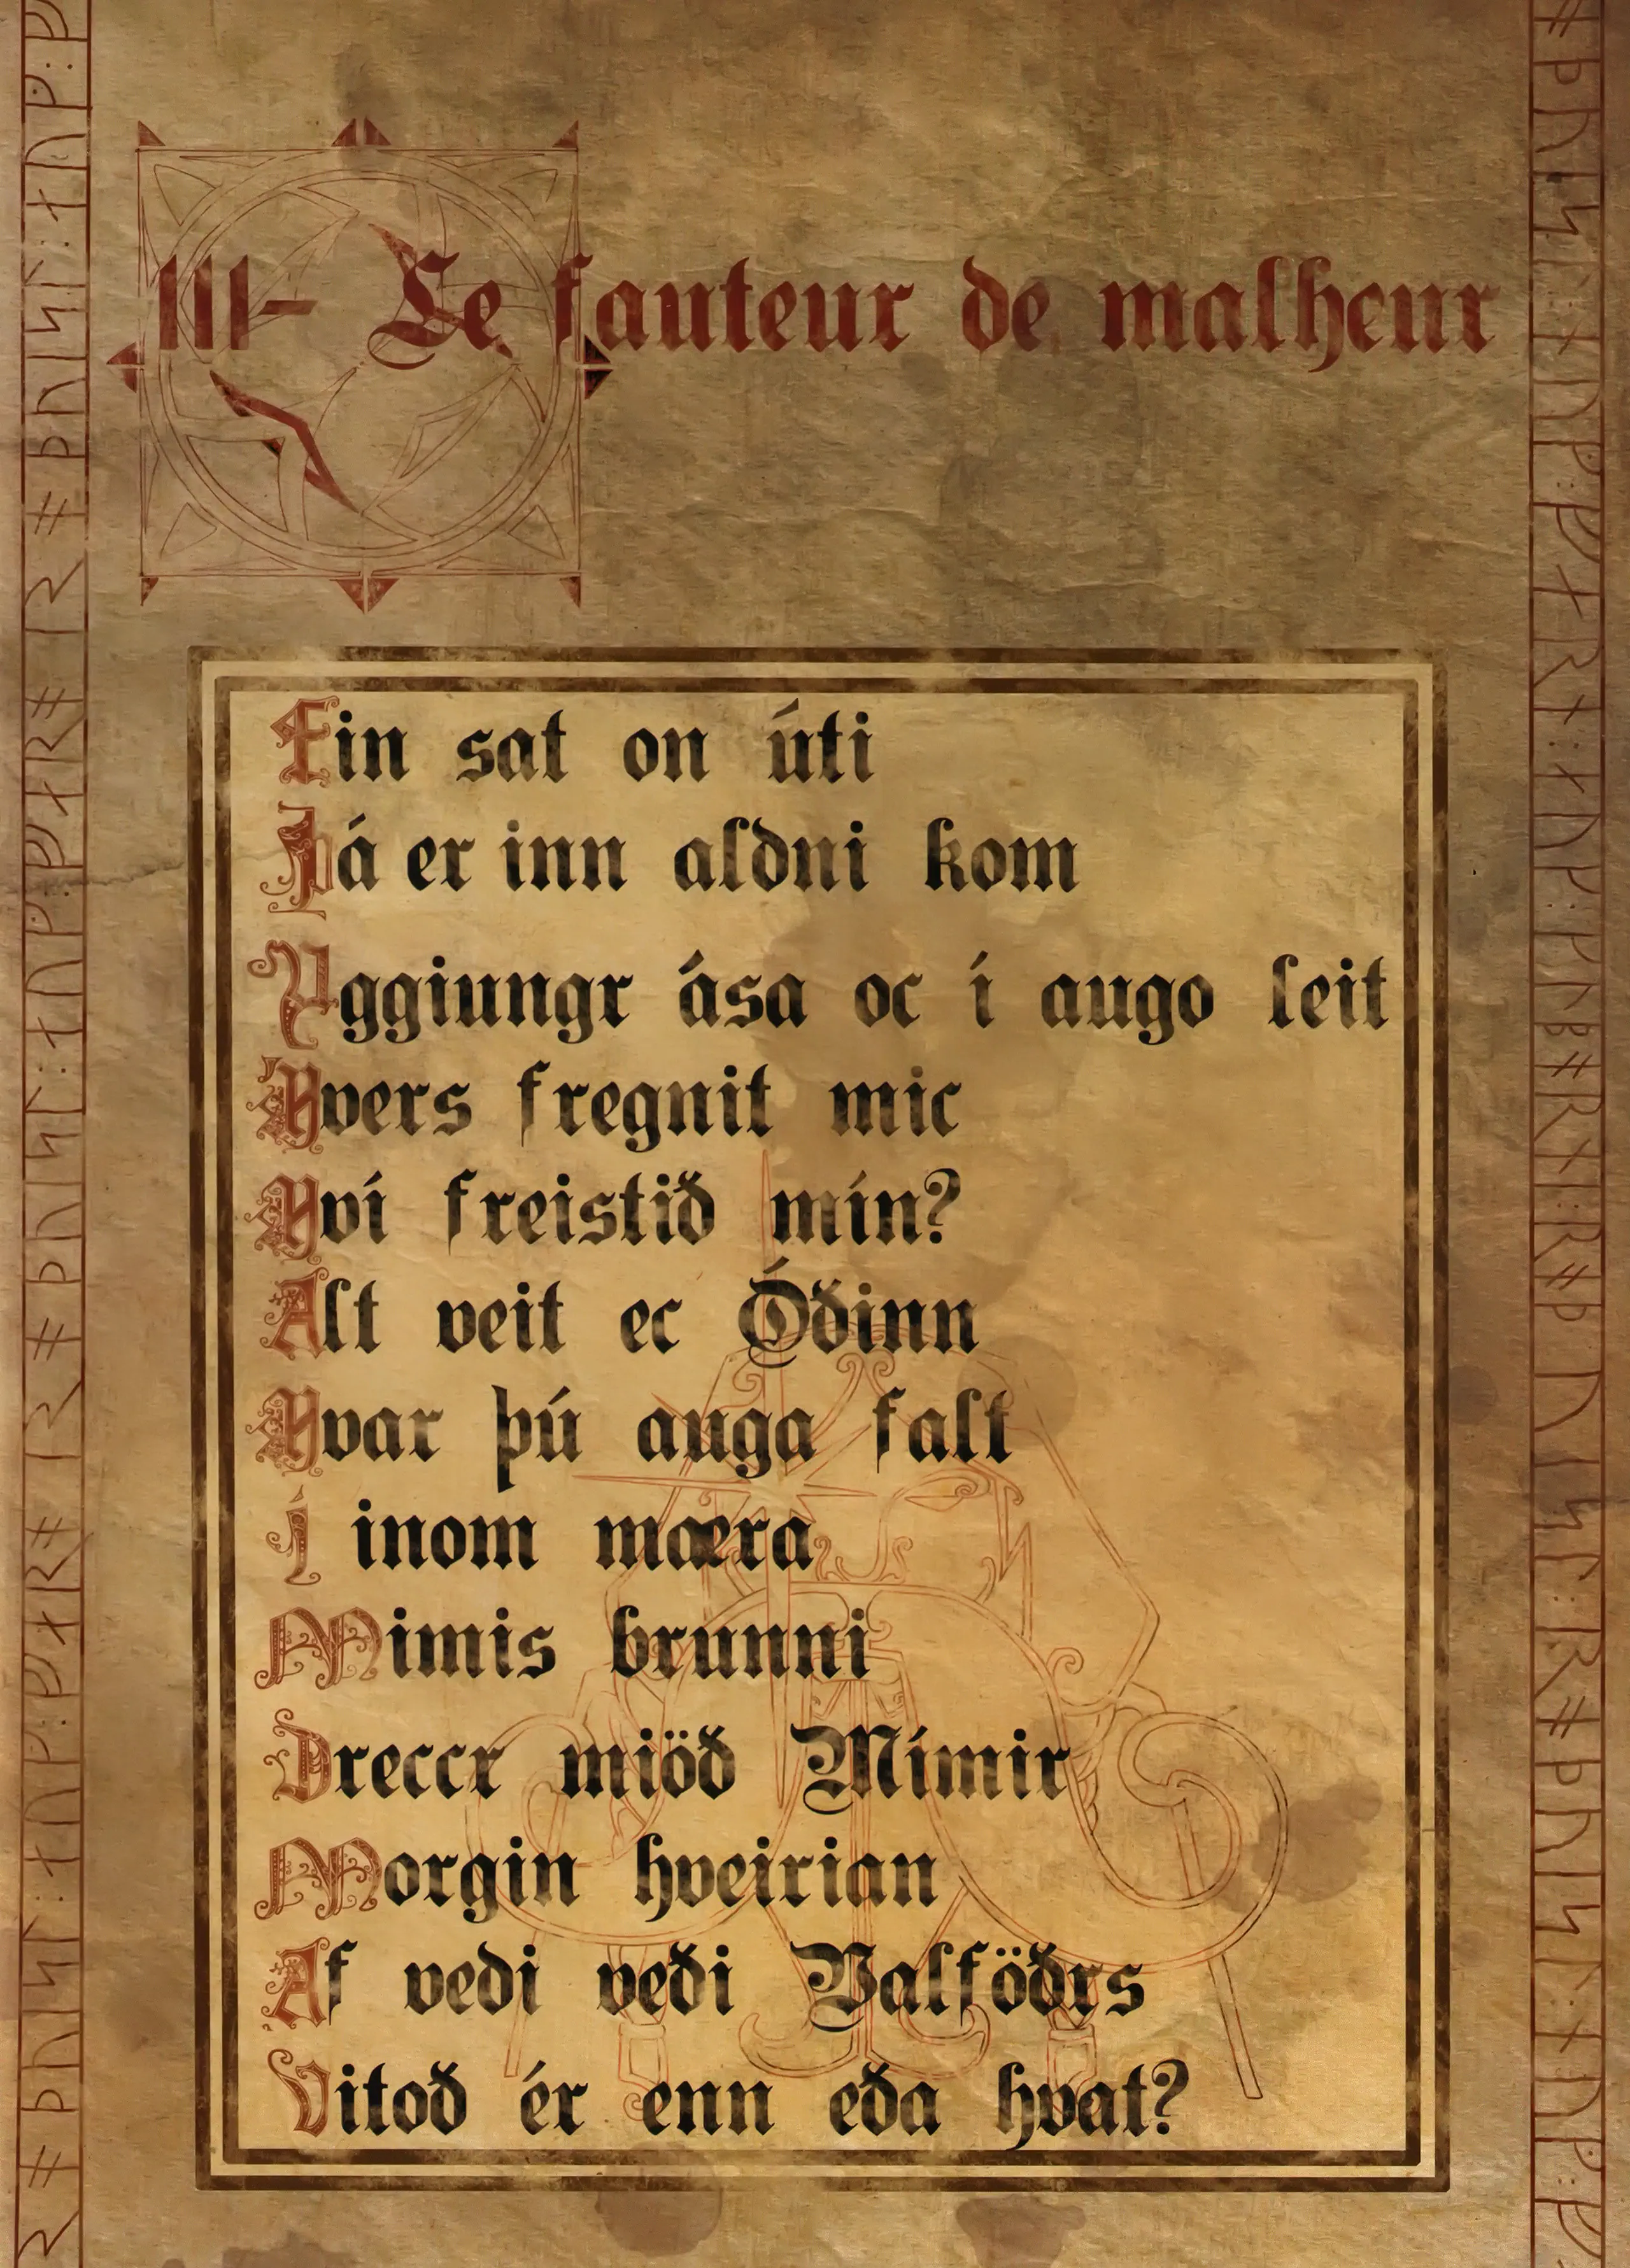 III- Le fauteur de malheur
Ein sat on úti
Þá er inn aldni kom
Yggiungr ása oc í augo leit
Hvers fregnit mic
Hví freistið mín?
Alt veit ec Óðinn
Hvar þú auga falt
Í inom mæra
Mimis brunni
Dreccr miöð Mímir
Morgin hveirian
Af vedi veði Valföðrs
Vitoð ér enn eða hvat?